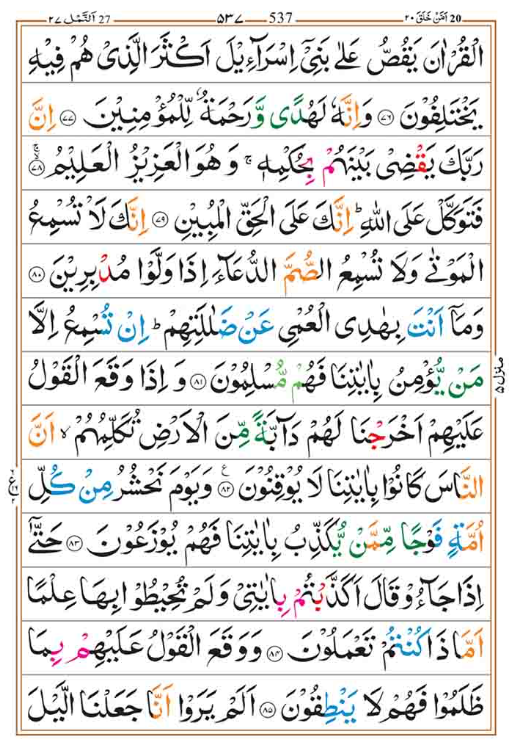 20 اَمَّنْ خَلَقَ ٢٠ 537 ٥٣٧ 27 اَلنَّمْل ٢٧
الْقُرْاٰنَ يَقُصُّ عَلٰى بَنِيْۤ اِسْرَآءِيْلَ اَكْثَرَ الَّذِيْ هُمْ فِيْهِ
يَخْتَلِفُوْنَ ﴿٧٦﴾ وَاِنَّهٗ لَهُدًى وَّرَحْمَةٌ لِّلْمُؤْمِنِيْنَ ﴿٧٧﴾ اِنَّ
رَبَّكَ يَقْضِيْ بَيْنَهُمْ بِحُكْمِهٖ ۚ وَهُوَ الْعَزِيْزُ الْعَلِيْمُ ﴿٧٨﴾
فَتَوَكَّلْ عَلَى اللّٰهِ ؕ اِنَّكَ عَلَى الْحَقِّ الْمُبِيْنِ ﴿٧٩﴾ اِنَّكَ لَا تُسْمِعُ
الْمَوْتٰى وَلَا تُسْمِعُ الصُّمَّ الدُّعَآءَ اِذَا وَلَّوْا مُدْبِرِيْنَ ﴿٨٠﴾
وَمَاۤ اَنْتَ بِهٰدِي الْعُمْيِ عَنْ ضَلٰلَتِهِمْ ؕ اِنْ تُسْمِعُ اِلَّا
مَنْ يُّؤْمِنُ بِاٰيٰتِنَا فَهُمْ مُّسْلِمُوْنَ ﴿٨١﴾ وَاِذَا وَقَعَ الْقَوْلُ
عَلَيْهِمْ اَخْرَجْنَا لَهُمْ دَآبَّةً مِّنَ الْاَرْضِ تُكَلِّمُهُمْ ۙ اَنَّ
النَّاسَ كَانُوْا بِاٰيٰتِنَا لَا يُوْقِنُوْنَ ﴿٨٢﴾ وَيَوْمَ نَحْشُرُ مِنْ كُلِّ
اُمَّةٍ فَوْجًا مِّمَّنْ يُّكَذِّبُ بِاٰيٰتِنَا فَهُمْ يُوْزَعُوْنَ ﴿٨٣﴾ حَتّٰۤى
اِذَا جَآءُوْ قَالَ اَكَذَّبْتُمْ بِاٰيٰتِيْ وَلَمْ تُحِيْطُوْا بِهَا عِلْمًا
اَمَّاذَا كُنْتُمْ تَعْمَلُوْنَ ﴿٨٤﴾ وَوَقَعَ الْقَوْلُ عَلَيْهِمْ بِمَا
ظَلَمُوْا فَهُمْ لَا يَنْطِقُوْنَ ﴿٨٥﴾ اَلَمْ يَرَوْا اَنَّا جَعَلْنَا الَّيْلَ
منزل ٥